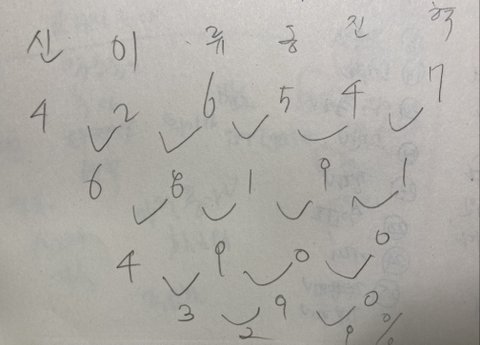 신 이 류 승 진 혁
4 2 6 5 4 7
6 8 1 9 1
4 9 0 0
3 9 0
2 9 %